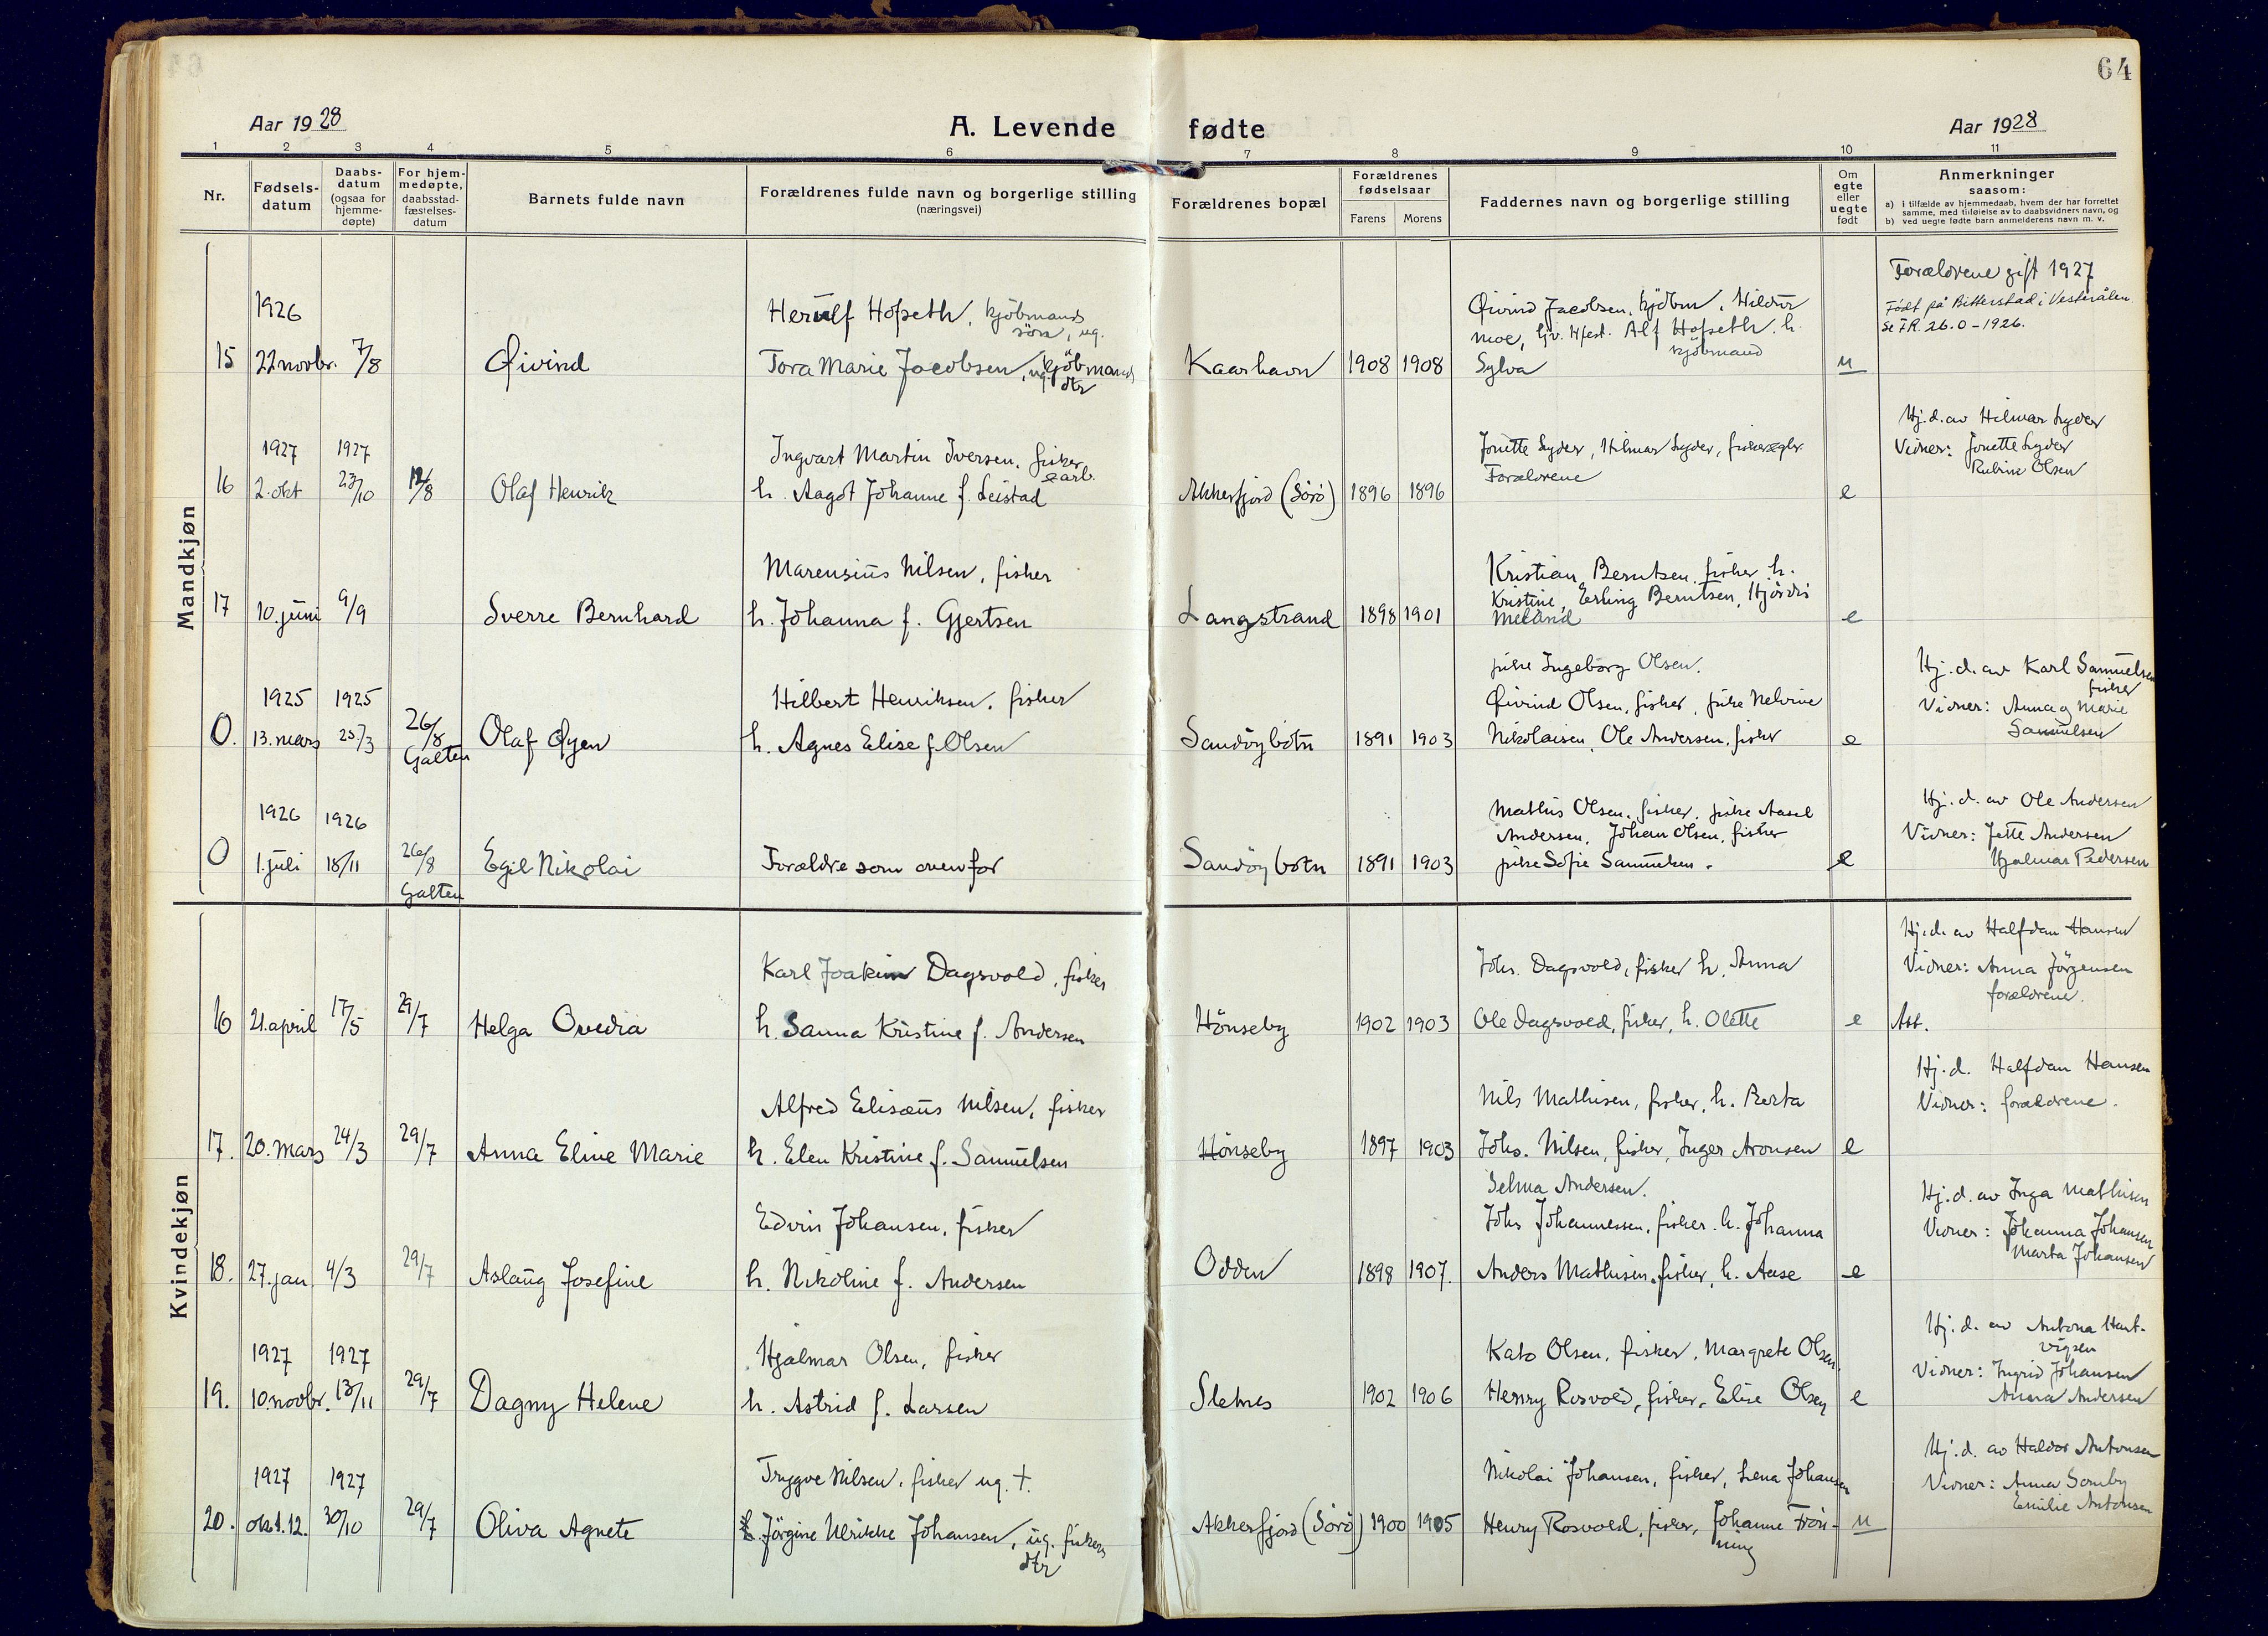 64
Aar 1928
A. Levende fødte
Aar 1928
1 2 3 4 5 6 7 8 9 10 11
Nr.
Fødsels-
datum
Daabs-
datum
(ogsaa for
hjemme-
døpte)
For hjem-
medøpte,
daabsstad-
fæstelses-
datum
Barnets fulde navn
Forældrenes fulde navn og borgerlige stilling
(næringsvei)
Forældrenes bopæl
Forældrenes
fødselsaar
Farens Morens
Faddernes navn og borgerlige stilling
Om
egte
eller
uegte
født
Anmerkninger
saasom:
a) i tilfælde av hjemmedaab, hvem der har forrettet
samme, med tilføielse av to daabsvidners navn, og
b) ved uegte fødte barn anmelderens navn m. v.
Mandkjøn
1926
15 22 novbr. 7/8 Øivind
Herulf Hofseth, kjöbmands
sön, ug.
Tora Marie Jacobsen, ug. kjöbmands
dtr
Kaarhavn 1908 1908
Øivind Jacobsen, kjöbm, Hildur
Moe, Hfest. Alf Hofseth, h.
kjöbmand
Sylva
u
Forældrene gift 1927
Født på Bitterstad i Vesterålen.
Se F.R. 26.0-1926.
1927 1927
16 2. okt 23/10 12/8 Olaf Henrik
Ingvart Martin Iversen, fisker
& arb.
h. Aagot Johanne f. Leistad
Akkerfjord (Sörö) 1896 1896
Jonette Lyder, Hilmar Lyder,
Forældrene
e
Hj. d. av Hilmar Lyder
Vidner: Jonette Lyder
Rubine Olsen
17 10. juni 9/9 Sverre Bernhard
Marensius Nilsen, fisker
h. Johanna f. Gjertsen
Langstrand 1898 1901
Kristian Berntsen, fisker, h.
Kristine, Erling Berntsen, Hjördis
Meland
e
1925 1925
0. 13. mars 25/3 26/8
Galten
Olaf Øyen
Hilbert Henriksen, fisker
h. Agnes Elise f. Olsen
Sandöybotn 1891 1903
pike Ingeborg Olsen.
Øivind Olsen, fisker, pike Nelvine
Nikolaisen, Ole Andersen, fisker
e
Hj. d. av Karl Samuelsen
fisker
Vidner: Anna og Marie
Samuelsen
1926 1926
0 1. juli 18/11 26/8
Galten
Egil Nikolai
Forældre som ovenfor
Sandöybotn 1891 1903
Mathis Olsen, fisker, pike Aasel
Andersen, Johan Olsen, fisker
pike Sofie Samuelsen.
e
Hj. d. av Ole Andersen
Vidner: Jette Andersen
Hjalmar Pedersen
Kvindekjøn
16 21. april 17/5 29/7 Helga Ovedia
Karl Joakim Dagsvold, fisker
h. Sanna Kristine f. Andersen
Hönseby 1902 1903
Johs. Dagsvold, fisker h. Anna
Ole Dagsvold, fisker, h. Olette
e
Hj. d. av Halfdan Hansen
Vidner: Anna Jörgensen
forældrene.
Att.
17. 20. mars 24/3 29/7 Anna Eline Marie
Alfred Elisæus Nilsen, fisker
h. Elen Kristine f. Samuelsen
Hönseby 1897 1903
Nils Mathisen, fisker, h. Berta
Johs. Nilsen, fisker, Inger Aronsen
Selma Andersen.
e
Hj. d. Halfdan Hansen
Vidner: forældrene.
18. 27. jan 4/3 29/7 Aslaug Josefine
Edvin Johansen, fisker
h. Nikoline f. Andersen
Odden 1898 1907.
Johs Johannessen, fisker. h. Johanna
Anders Mathisen, fisker, h. Aase
e
Hj. d. av Inga Mathisen
Vidner: Johanna Johansen
Marta Johansen
1927 1927
19. 10. novbr. 13/11 29/7 Dagny Helene
Hjalmar Olsen, fisker
h. Astrid f. Larsen
Sletnes 1902 1906
Kato Olsen, fisker, Margrete Olsen
Henry Rosvold, fisker, Elise Olsen
e
Hj. d. av Antona Hart-
vigsen
Vidner: Ingrid Johansen
Anna Andersen
1927 1927
20. okt. 12. 30/10 29/7 Oliva Agnete
Tryggve Nilsen, fisker ug. †.
Jörgine Ulrikke Johansen, ug. fiskers
dtr
Akkerfjord (Sörö) 1900 1905
Nikolai Johansen, fisker, Lena Johansen
Henry Rosvold, fisker, Johanne Frön-
ning
u
Hj. d. av Haldor Antonsen
Vidner: Anna Somby
Emilie Antonsen